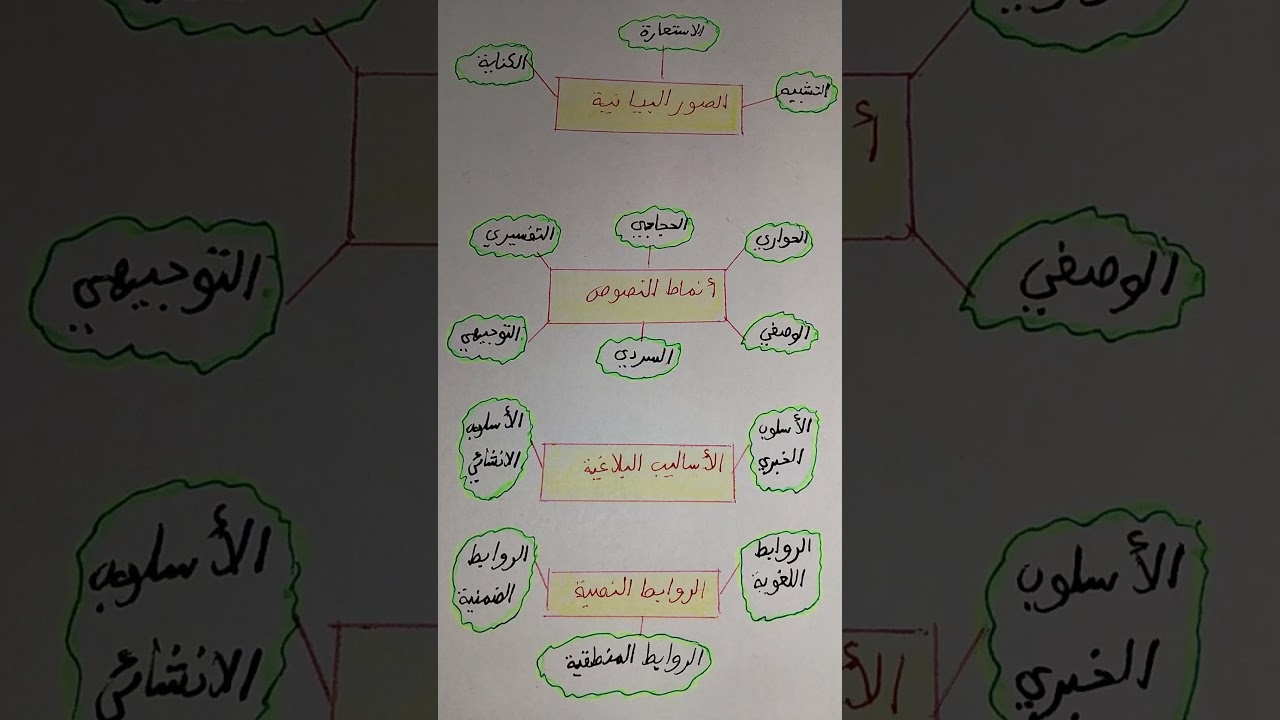 الاستعارة
الكناية
التشبيه
الصور البيانية
الحجاجي
التفسيري
الحواري
أنماط النصوص
التوجيهي
الوصفي
السردي
الأسلوب
الخبري
الأساليب البلاغية
الأسلوب
الانشائي
الروابط
اللغوية
الروابط النصية
الروابط
الضمنية
الروابط المنطقية
التوجيهي
أ
الوصفي
الأسلوب
الانشائي
الأسلوب
الخبري